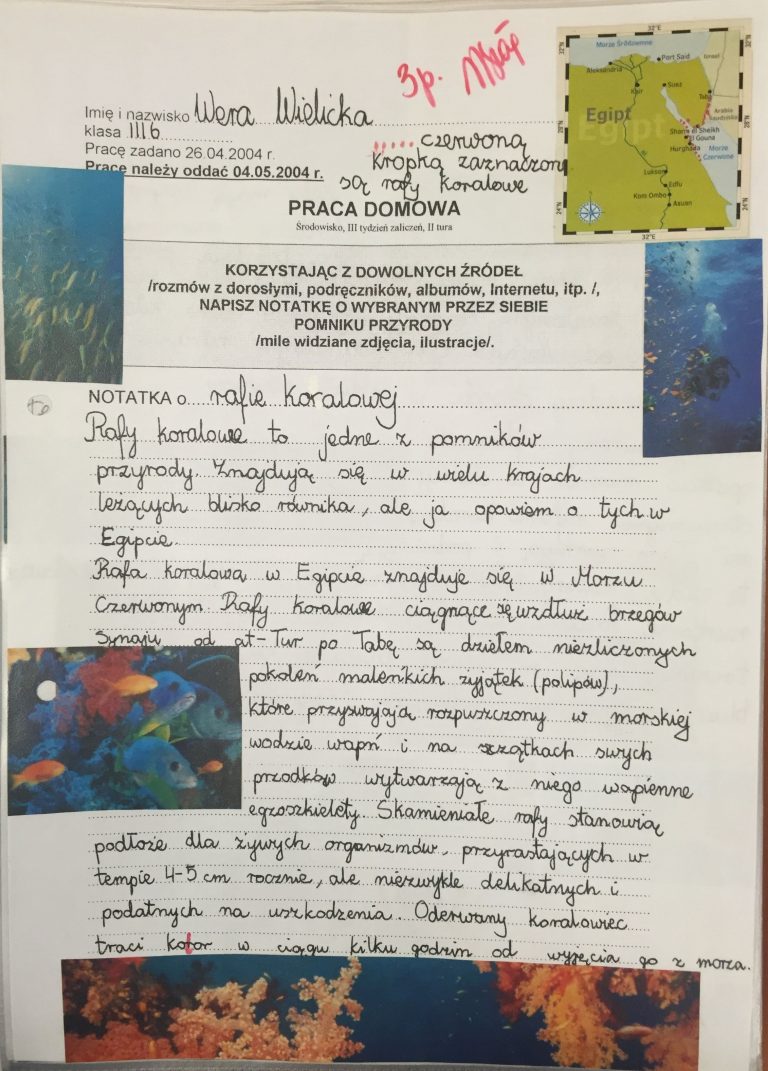 3p.
Imię i nazwisko Wera Wielicka
klasa III b
Pracę zadano 26.04.2004 r.
Pracę należy oddać 04.05.2004 r.
..... czerwoną
kropką zaznaczon
są rafy koralowe
32°E
Morze Śródziemne
Port Said
Izrael
Aleksandria
32°N
32°N
Kair
Suez
Taba
Egipt
Arabia
Saudyjska
28°N
28°N
Sharm el Sheikh
El Gouna
Hurghada
Morze
Czerwone
Luksor
Edfu
Kom Ombo
Asuan
24°N
24°N
32°E
PRACA DOMOWA
Środowisko, III tydzień zaliczeń, II tura
KORZYSTAJĄC Z DOWOLNYCH ŹRÓDEŁ
/rozmów z dorosłymi, podręczników, albumów, Internetu, itp. /,
NAPISZ NOTATKĘ O WYBRANYM PRZEZ SIEBIE
POMNIKU PRZYRODY
/mile widziane zdjęcia, ilustracje/.
NOTATKA o rafie koralowej
Rafy koralowe to jedne z pomników
przyrody. Znajdują się w wielu krajach
leżących blisko równika, ale ja opowiem o tych w
Egipcie.
Rafa koralowa w Egipcie znajduje się w Morzu
Czerwonym. Rafy koralowe ciągnące się wzdłuż brzegów
Synaju od at-Tur po Tabę są dziełem niezliczonych
pokoleń maleńkich żyjątek (polipów),
które przyswajają rozpuszczony w morskiej
wodzie wapń i na szczątkach swych
przodków wytwarzają z niego wapienne
egzoszkielety. Skamieniałe rafy stanowią
podłoże dla żywych organizmów, przyrastających w
tempie 4-5 cm rocznie, ale niezwykle delikatnych i
podatnych na uszkodzenia. Oderwany koralowiec
traci kolor w ciągu kilku godzin od wyjęcia go z morza.